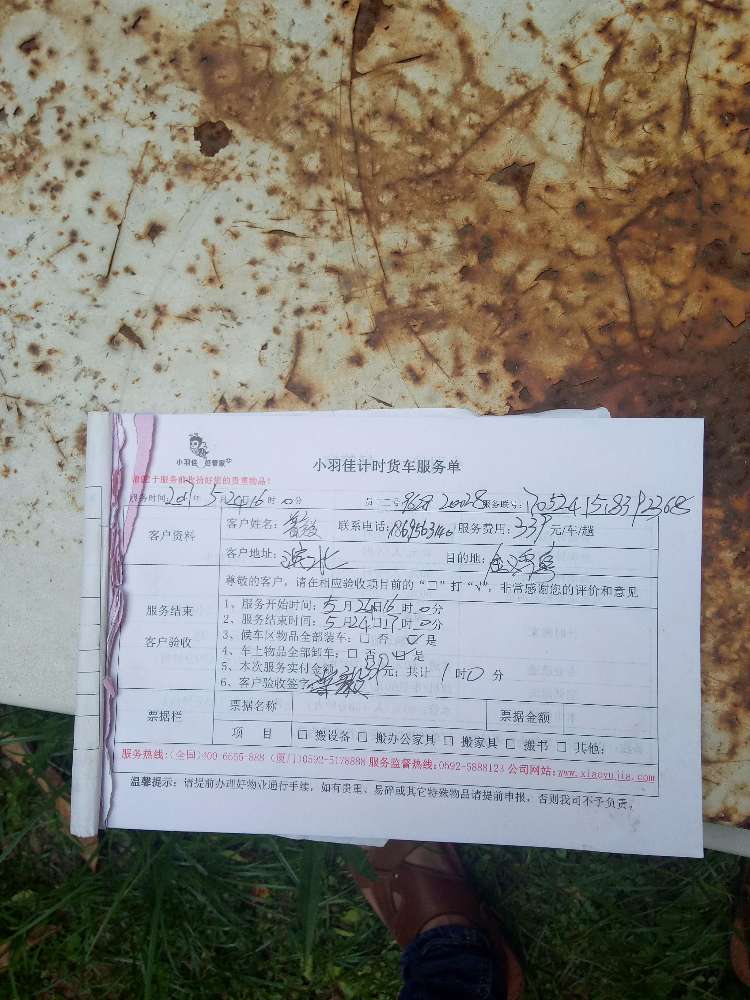 小羽佳 好管家
小羽佳计时货车服务单
请您于服务前收拾好您的贵重物品!
服务时间: 年5月24日16时0分 服务联号:
客户资料
客户姓名: 联系电话: 服务费用:339元/车/趟
客户地址: 目的地:
尊敬的客户,请在相应验收项目前的“□”打“√”,非常感谢您的评价和意见
服务结束
客户验收
1、服务开始时间:5月24日16时0分
2、服务结束时间:5月24日17时0分
3、候车区物品全部装车:□ 否 □ 是
4、车上物品全部卸车:□ 否 □ 是
5、本次服务实付金额 元;共计1时0分
6、客户验收签字:
票据栏
票据名称
票据金额
项 目
□ 搬设备 □ 搬办公家具 □ 搬家具 □ 搬书 □ 其他:
服务热线:(全国)409-6655-888 (厦门)0592-5178888 服务监督热线:0592-5888123 公司网站:www.xiaoyujia.com
温馨提示:请提前办理好物业通行手续,如有贵重、易碎或其它特殊物品请提前申报,否则我司不予负责。